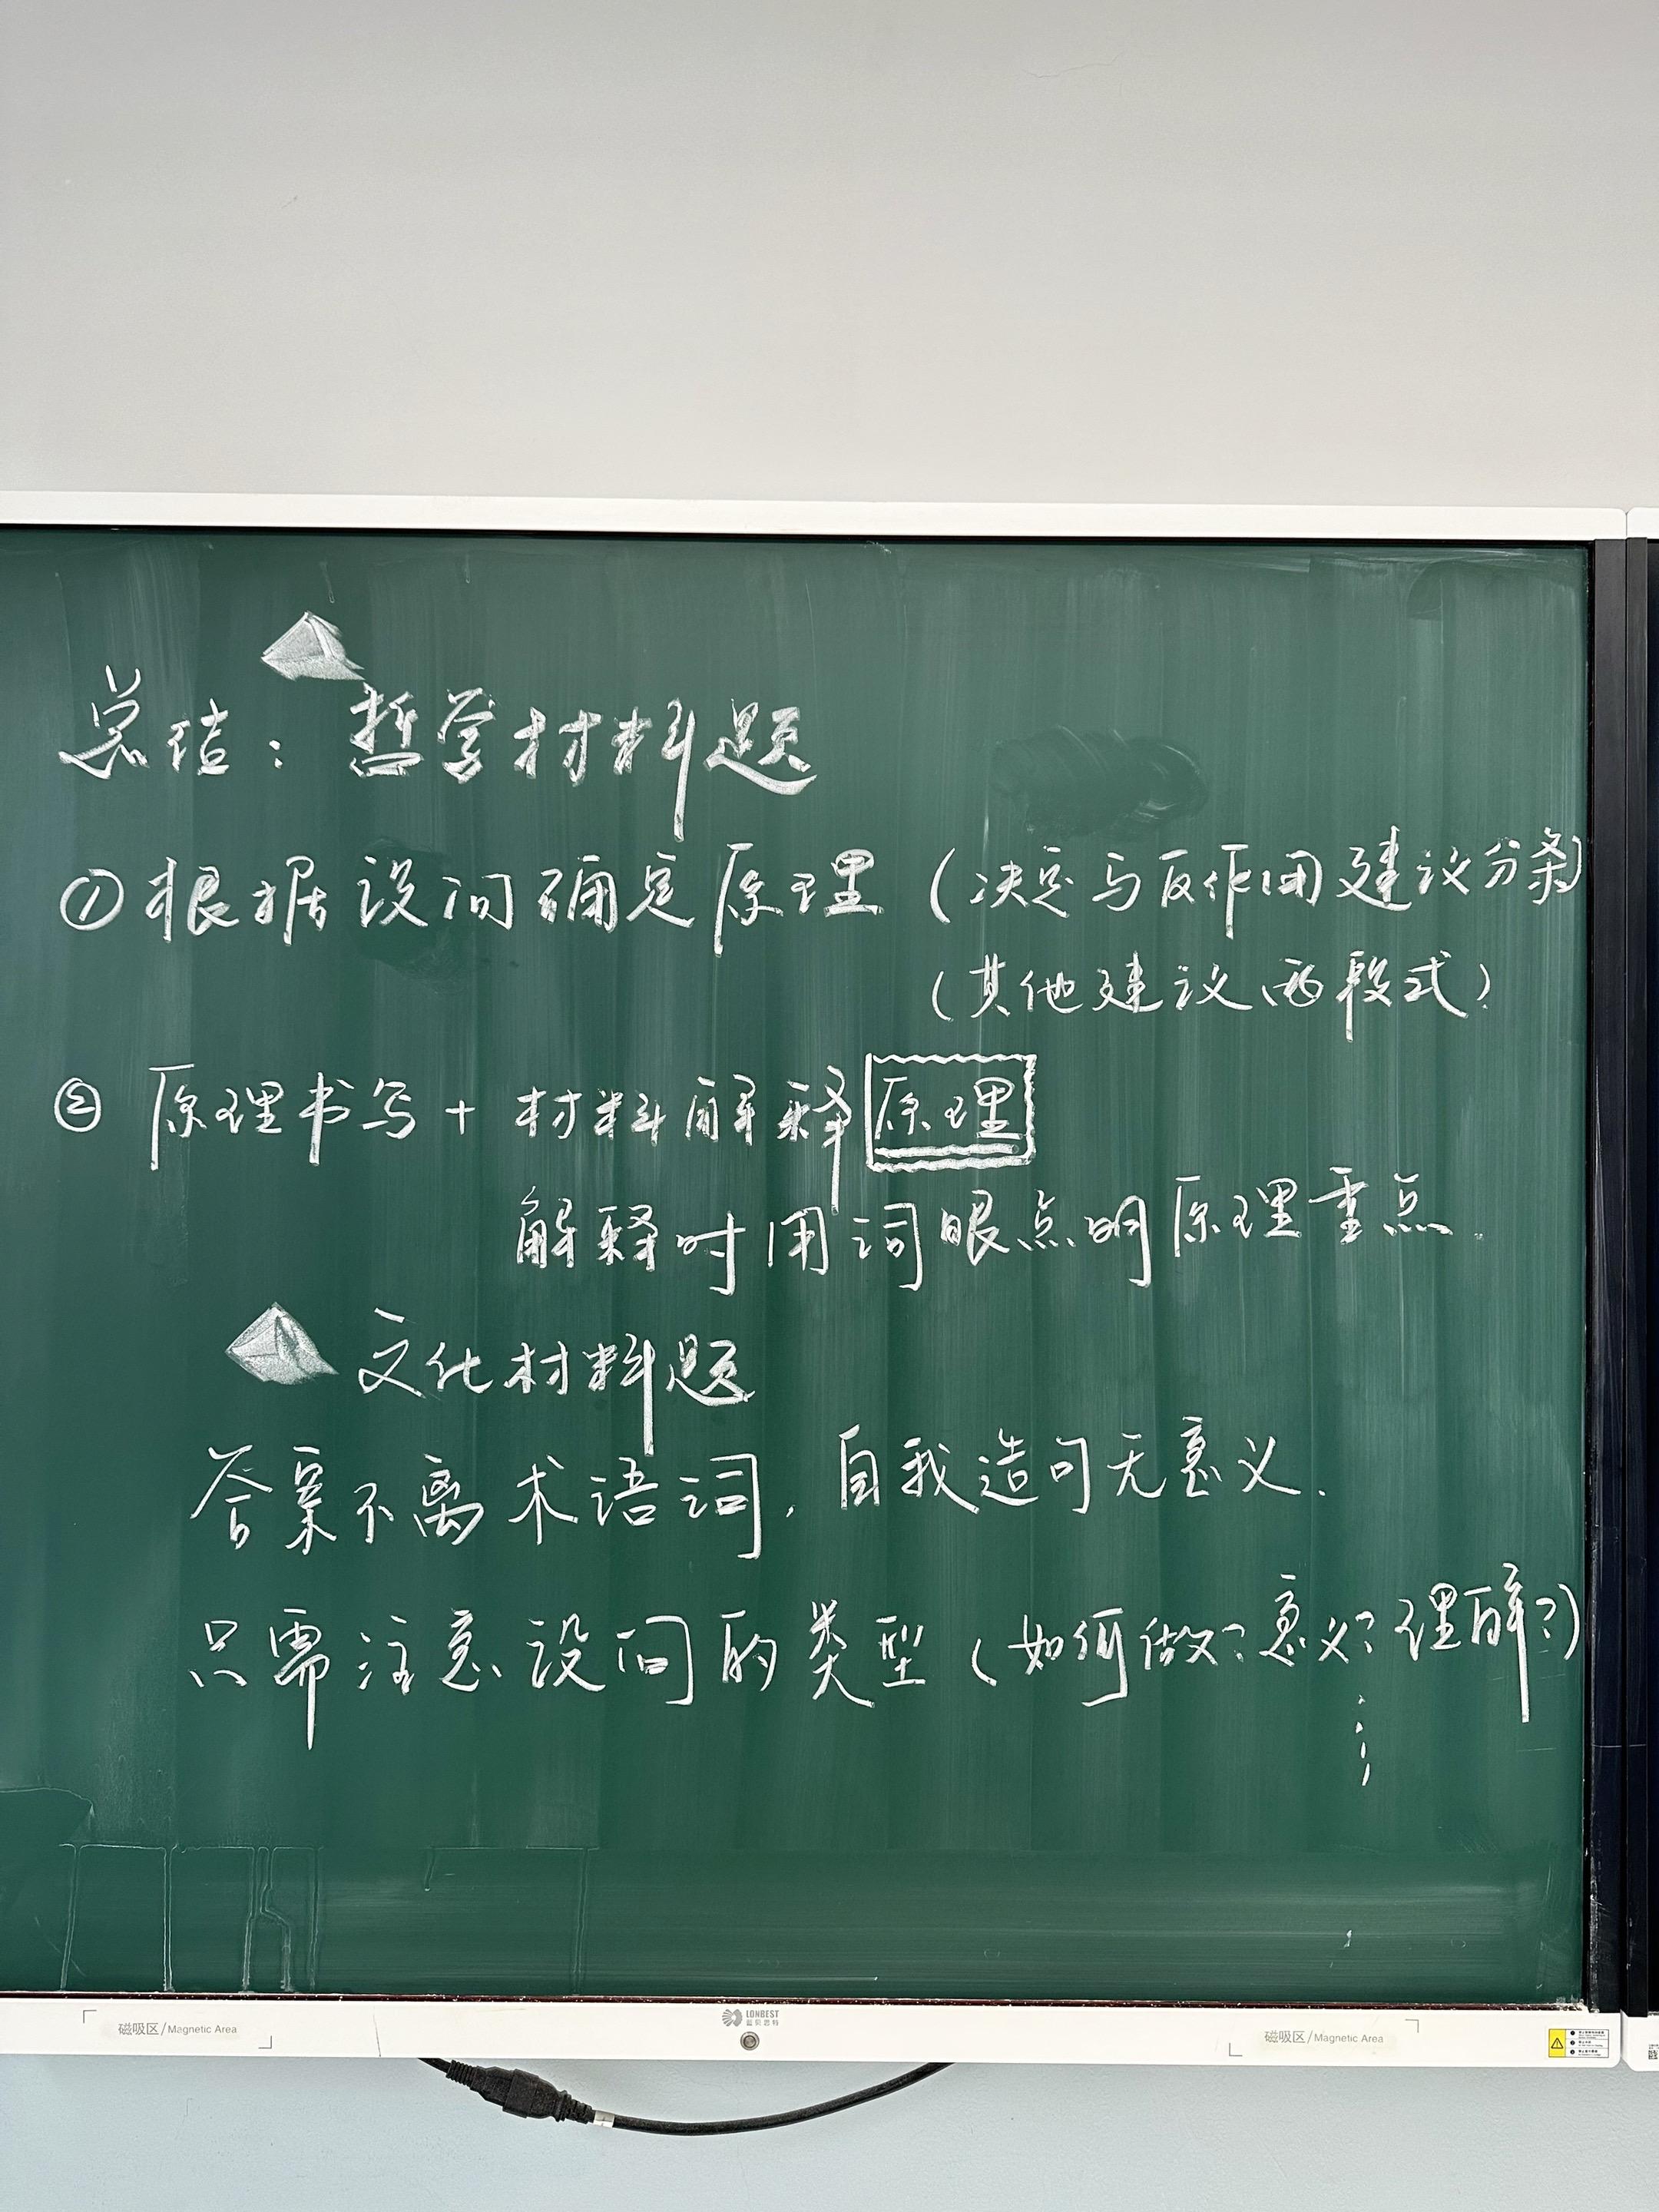 总结：哲学材料题
①根据设问确定原理（决定与反作用建议分条）
（其他建议两段式）
② 原理书写+材料解释原理
解释时用词眼点明原理重点.
文化材料题
答案不离术语词，自我造句无意义.
只需注意设问的类型（如何做？意义？理解？）
……
磁吸区/Magnetic Area
LONBEST
蓝贝思特
磁吸区/Magnetic Area